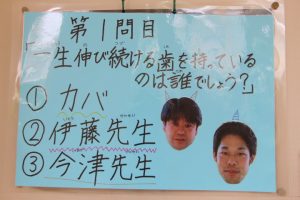 第1問目
「一生伸び続ける歯を持っている
のは誰でしょう?」
① カバ
② 伊藤先生
③ 今津先生